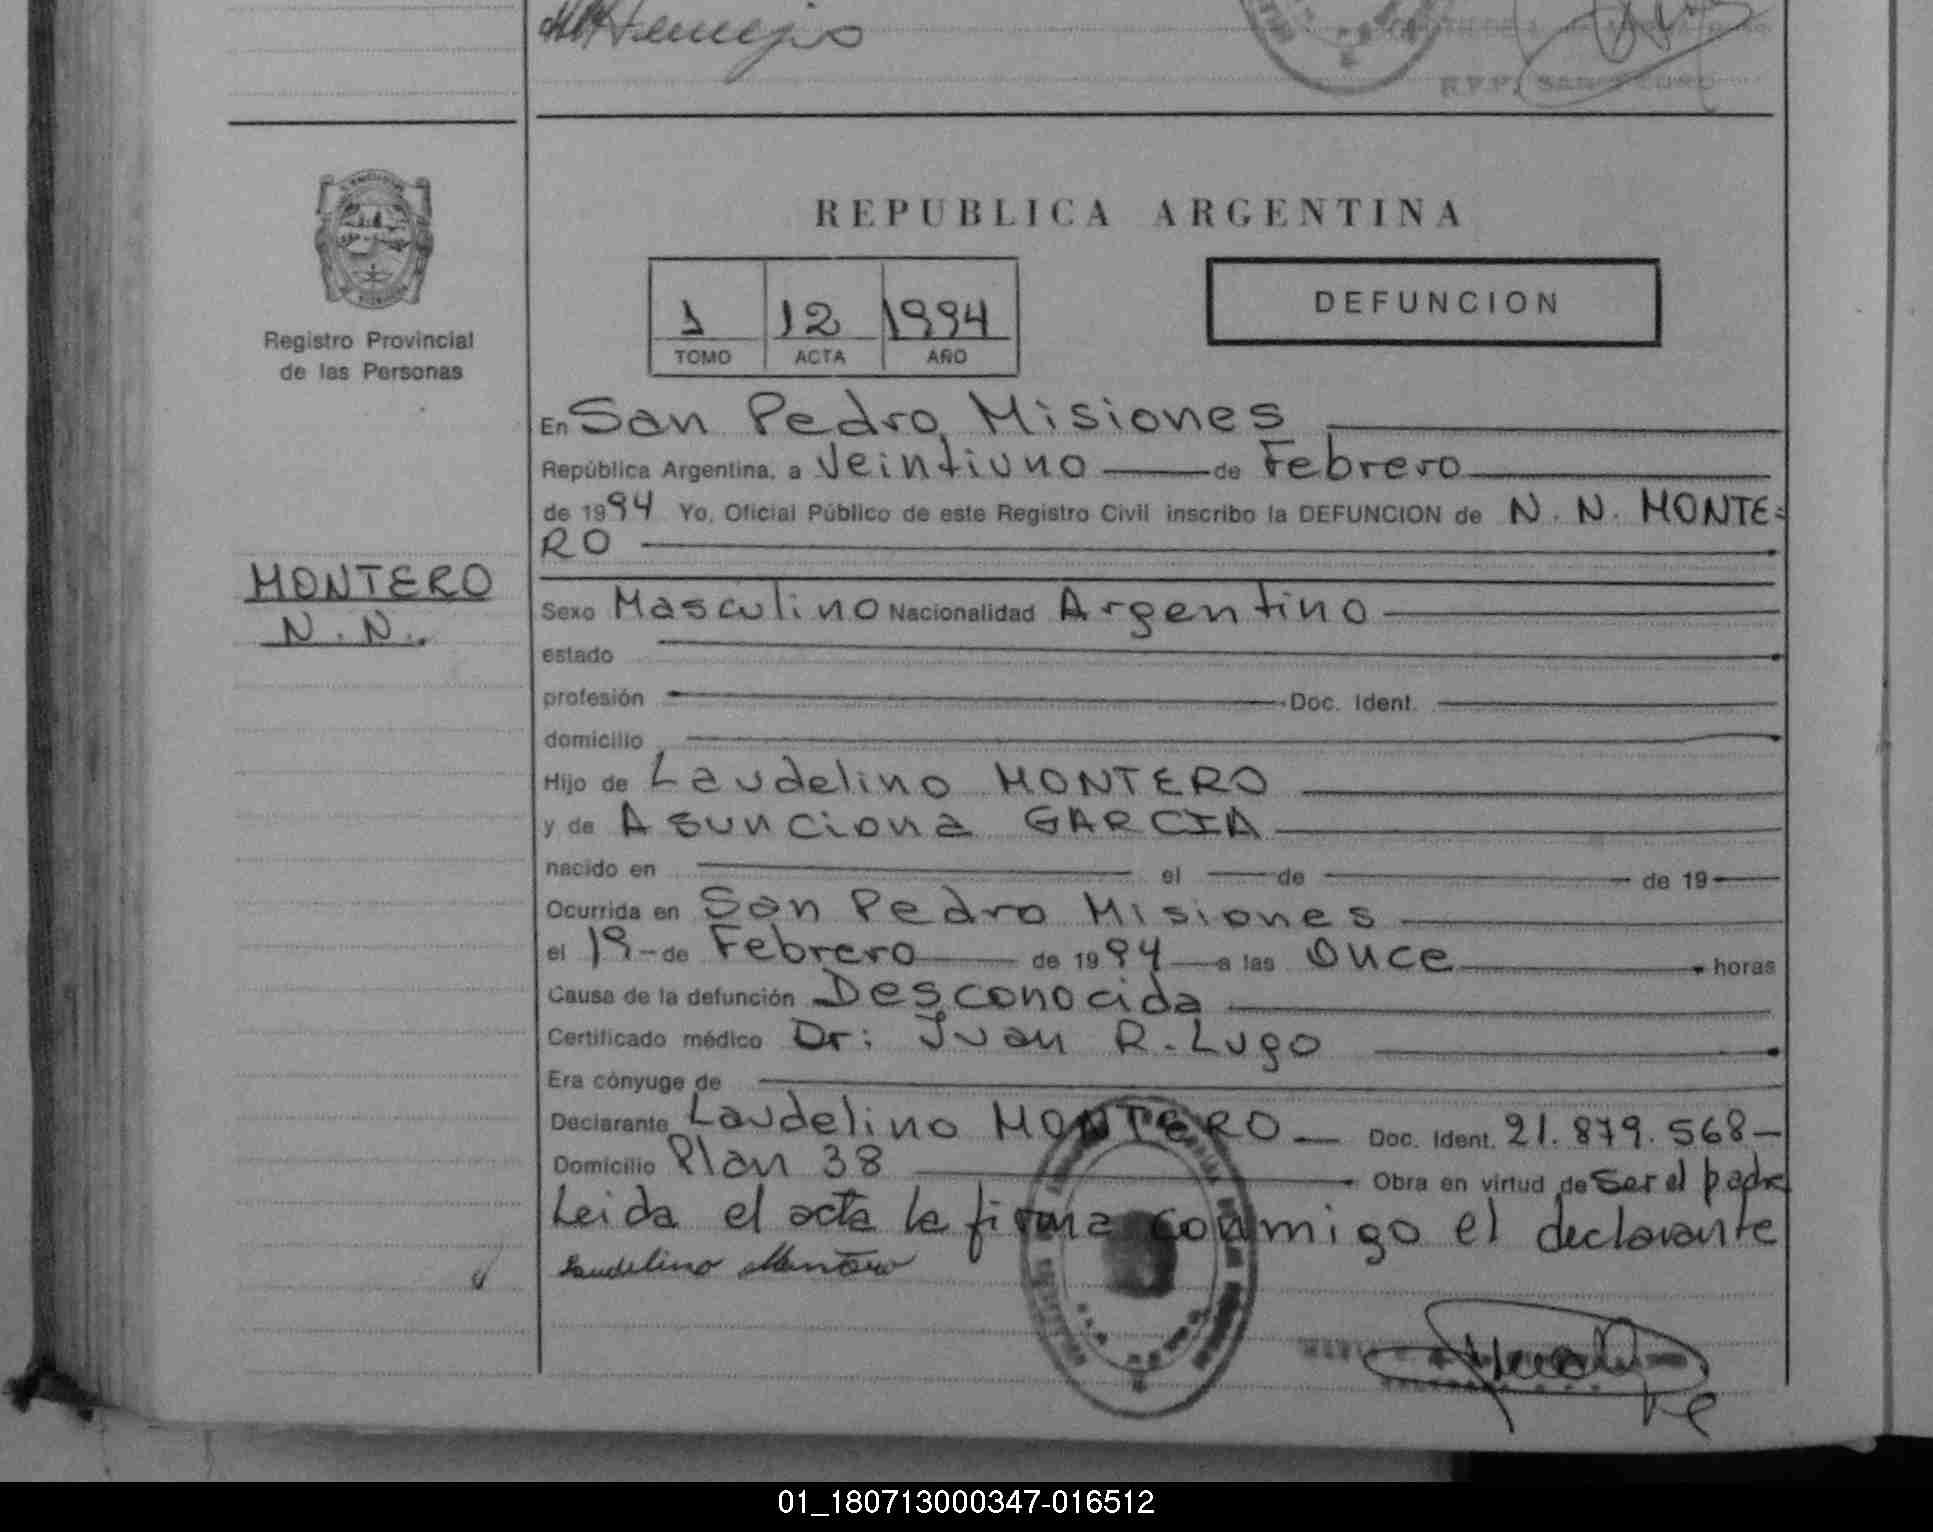 R.P.P. SAN PEDRO
REPUBLICA ARGENTINA
1 12 1994
TOMO ACTA AÑO
DEFUNCION
Registro Provincial
de las Personas
En San Pedro, Misiones
República Argentina, a Veintiuno de Febrero
de 1994 Yo, Oficial Público de este Registro Civil inscribo la DEFUNCION de N. N. MONTE=
RO
MONTERO
N. N.
Sexo Masculino Nacionalidad Argentino
estado
profesión Doc. Ident.
domicilio
Hijo de Laudelino MONTERO
y de Asunciona GARCIA
nacido en el de de 19
Ocurrida en San Pedro Misiones
el 19-de Febrero de 1994 a las Once horas
Causa de la defunción Desconocida
Certificado médico Dr: Juan R. Lugo
Era cónyuge de
Declarante Laudelino MONTERO Doc. Ident. 21.879.568-
Domicilio Plan 38 Obra en virtud de ser el padre
Leida el acta la firma conmigo el declarante
Laudelino Montero
01_180713000347-016512